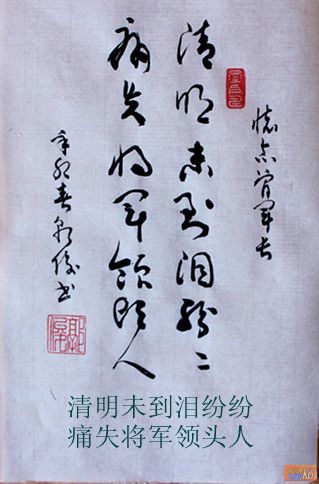 军长
清明未到泪纷〻
痛失将军领头人
春 书
清明未到泪纷纷
痛失将军领头人